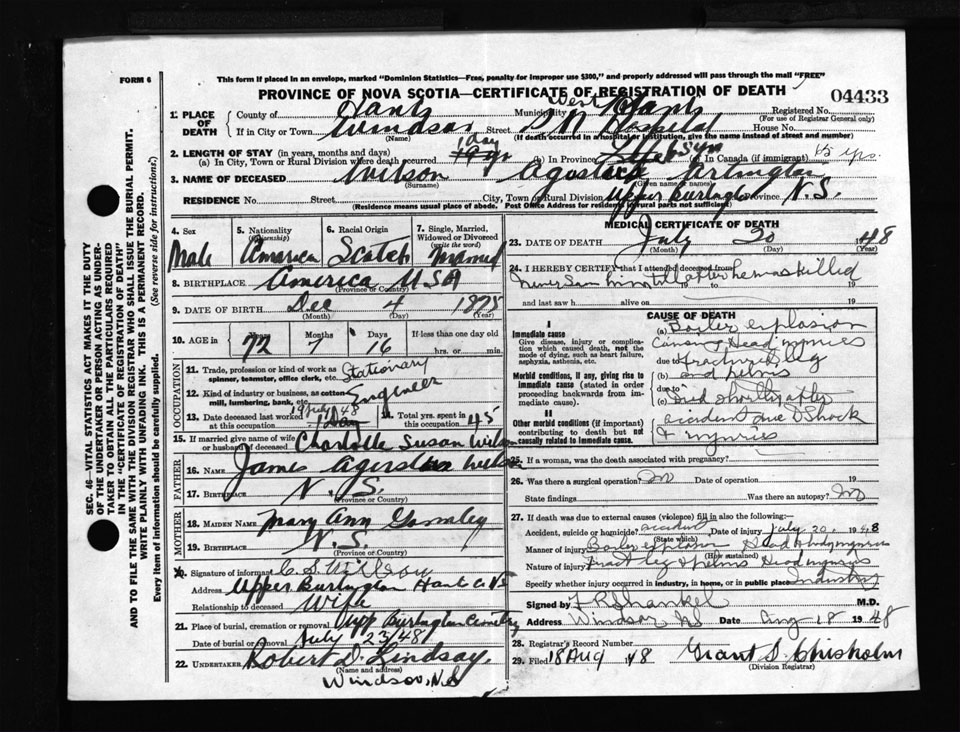 FORM 6
This form if placed in an envelope, marked "Dominion Statistics—Free, penalty for improper use $300," and properly addressed will pass through the mail "FREE"
PROVINCE OF NOVA SCOTIA—CERTIFICATE OF REGISTRATION OF DEATH
04433
1. PLACE OF DEATH
County of Hants Municipality West Hants Registered No.
(For use of Registrar General only)
If in City or Town Windsor, Street Hospital House No.
(Name) (If death occurred in a hospital or institution, give the name instead of street and number)
2. LENGTH OF STAY (in years, months and days)
(a) In City, Town or Rural Division where death occurred 1 Day (b) In Province (c) In Canada (if immigrant) yrs.
3. NAME OF DECEASED Wilson Arlington
(Surname) (Given name or names)
RESIDENCE No. Street City, Town or Rural Division Upper Burlington Province N.S.
(Residence means usual place of abode. Post Office Address for residents of rural parts not sufficient)
4. Sex
Male
5. Nationality
(Citizenship)
America
6. Racial Origin
Scotch
7. Single, Married, Widowed or Divorced
(write the word)
Married
8. BIRTHPLACE America USA
(Province or Country)
9. DATE OF BIRTH Dec 4 1875
(Month) (Day) (Year)
10. AGE in
Years Months Days If less than one day old
72 7 16 hrs. or min.
OCCUPATION
11. Trade, profession or kind of work as spinner, teamster, office clerk, etc. Stationary
12. Kind of industry or business, as cotton mill, lumbering, bank, etc. Engineer
13. Date deceased last worked at this occupation 19 July 48
14. Total yrs. spent in this occupation 45
15. If married give name of wife or husband of deceased Charlotte Susan Wilson
FATHER
16. NAME James Wilson
17. BIRTHPLACE N.S.
(Province or Country)
MOTHER
18. MAIDEN NAME Mary Ann
19. BIRTHPLACE N.S.
(Province or Country)
20. Signature of informant C. S. Wilson
Address Upper Burlington Hants Co NS
Relationship to deceased Wife
21. Place of burial, cremation or removal Upp Burlington Cemetry
Date of burial or removal July 23/48
22. UNDERTAKER Robert D. Lindsay.
(Name and address)
Windsor, N.S
MEDICAL CERTIFICATE OF DEATH
23. DATE OF DEATH July 20 48
(Month) (Day) (Year)
24. I HEREBY CERTIFY that I attended deceased from
never saw him till after he was killed
19 to 19
and last saw h alive on 19
CAUSE OF DEATH
I
Immediate cause
Give disease, injury or complication which caused death, not the mode of dying, such as heart failure, asphyxia, asthenia, etc.
(a) Boiler explosion
Causing Head injuries
due to fractured leg
Morbid conditions, if any, giving rise to immediate cause (stated in order proceeding backwards from immediate cause).
(b) and pelvis
due to
(c) Died shortly after
II
Other morbid conditions (if important) contributing to death but not causally related to immediate cause.
accident due to Shock
& injuries
25. If a woman, was the death associated with pregnancy?
26. Was there a surgical operation? no Date of operation 19
State findings Was there an autopsy? no
27. If death was due to external causes (violence) fill in also the following:—
Accident, suicide or homicide? accident Date of injury July 20, 1948
(State which)
Manner of injury Boiler explosion Head & body injuries
(How sustained)
Nature of injury Fract leg & pelvis Head injuries
Specify whether injury occurred in industry, in home, or in public place Industry
Signed by F R Shankel M.D.
Address Windsor NS Date Aug 18 1948
28. Registrar's Record Number
29. Filed 18 Aug 48 Grant S. Chisholm
(Division Registrar)
SEC. 46—VITAL STATISTICS ACT MAKES IT THE DUTY OF THE UNDERTAKER OR PERSON ACTING AS UNDERTAKER TO OBTAIN ALL THE PARTICULARS REQUIRED IN THE "CERTIFICATE OF REGISTRATION OF DEATH" AND TO FILE THE SAME WITH THE DIVISION REGISTRAR WHO SHALL ISSUE THE BURIAL PERMIT.
WRITE PLAINLY WITH UNFADING INK. THIS IS A PERMANENT RECORD.
Every item of information should be carefully supplied. (See reverse side for instructions.)